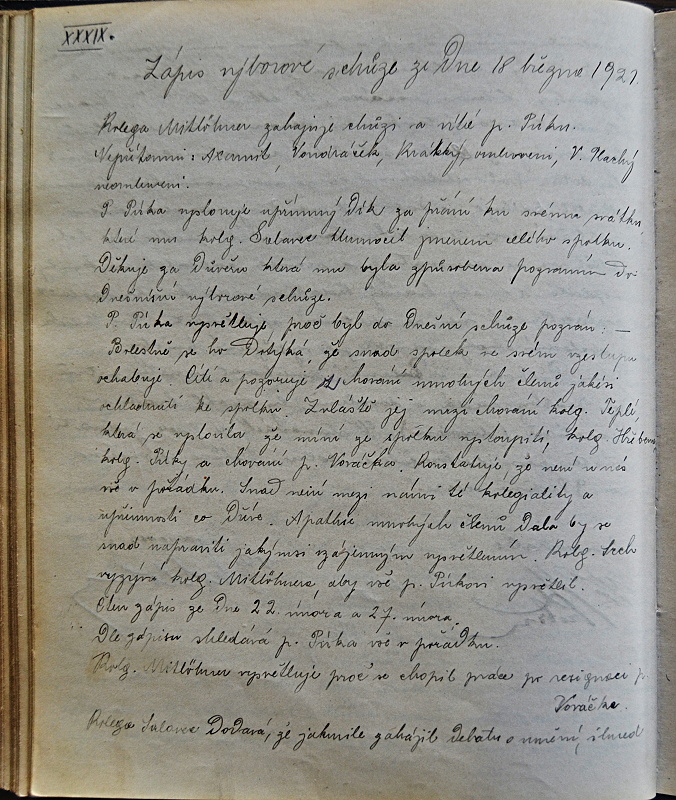 XXXIX.
Zápis výborové schůze ze Dne 18 března 1921.
Kolega Mitlöhner zahajuje schůzi a vítá p. Půku.
Nepřítomni: Axamit, Vondráček, Krátký, omluveni, V. Plachý
neomluveni.
P. Půka vyslovuje upřímný Dík za přání ku svému svátku
které mu kolg. Salavec tlumočil jmenem celého spolku.
Děkuje za Důvěru která mu byla způsobena pozváním do
Dnešnísní výborové schůze.
P. Půka vysvětluje, proč byl do Dnešní schůze pozván: —
Bolestně se ho Dotýká, že snad spolek ve svém vzestupu
ochabuje. Cítí a pozoruje chování mnohých členů jakési
ochladnutí ke spolku. Zvláště jej mrzí chování kolg. Teplé,
která se vyslovila že míní ze spolku vystoupiti, kolg.
kolg. Pitky a chování p. Voráčka. Konstatuje že není u nás
vše v pořádku. Snad není mezi námi té kolegiality a
upřímnosti co Dříve. Apathie mnohých členů Dala by se
snad napraviti jakýmsi vzájemným vysvětlením. Kolg. Sech
vyzývá kolg. Mitlöhnera, aby vše p. Půkovi vysvětlil.
Čten zápis ze Dne 22. února a 27. února.
Dle zápisu shledává p. Půka vše v pořádku.
Kolg. Mitlöhner vysvětluje proč se chopil práce po resignaci p.
Voráčka.
Kolega Salavec Dodává, že jakmile zahájil debatu o umění, ihned